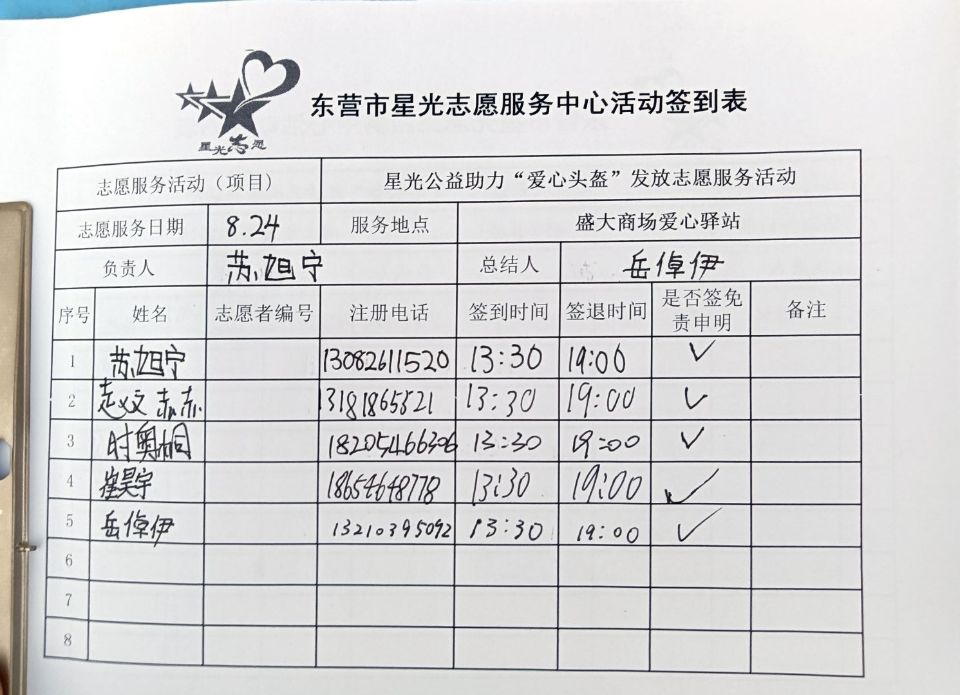 星光志愿
东营市星光志愿服务中心活动签到表
志愿服务活动（项目） 星光公益助力“爱心头盔”发放志愿服务活动
志愿服务日期 8.24 服务地点 盛大商场爱心驿站
负责人 苏旭宁 总结人 岳倬伊
序号 姓名 志愿者编号 注册电话 签到时间 签退时间 是否签免责申明 备注
1 苏旭宁 13082611520 13:30 19:00 ✓
2 13:30 19:00 ✓
3 时奥桐 13:30 19:00 ✓
4 崔昊宇 18654648778 13:30 19:00 ✓
5 岳倬伊 13210395092 13:30 19:00 ✓
6
7
8